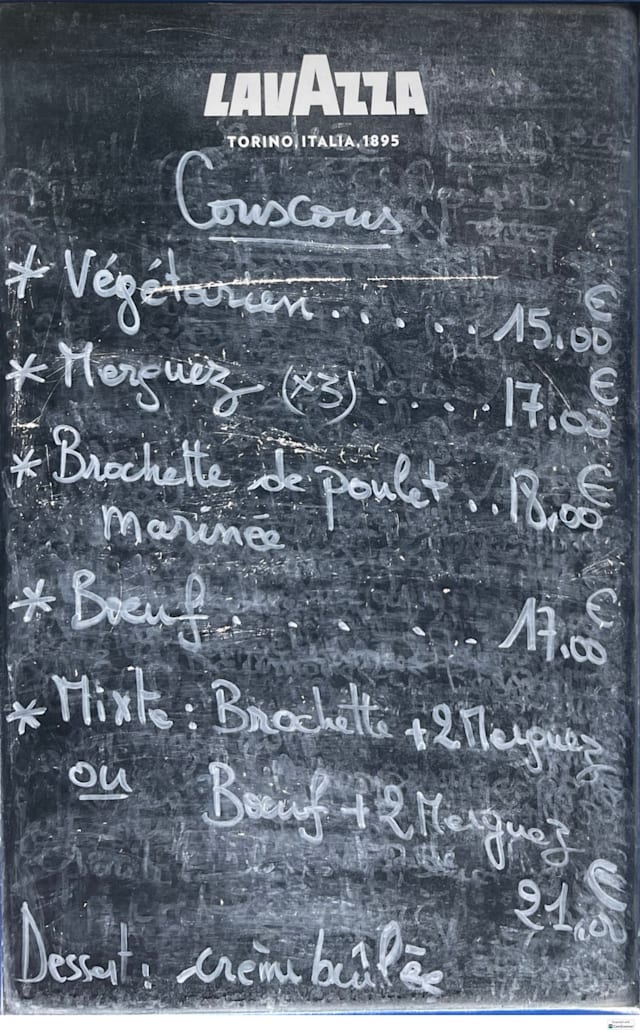 LAVAZZA
TORINO, ITALIA, 1895
Couscous
* Végétarien.... ... 15.00 €
* Merguez (x3) ..... 17.00 €
* Brochette de poulet .. 18,00 €
marinée
* Bœuf. . . . ... 17.00 €
* Mixte: Brochette + 2 Merguez
ou Bœuf + 2 Merguez
21,00 €
Dessert: crème brûlée